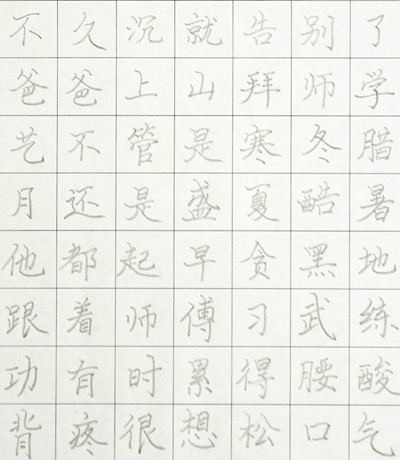 不久沉就告别了
爸爸上山拜师学
艺不管是寒冬腊
月还是盛夏酷暑
他都起早贪黑地
跟着师傅习武练
功有时累得腰酸
背疼很想松口气